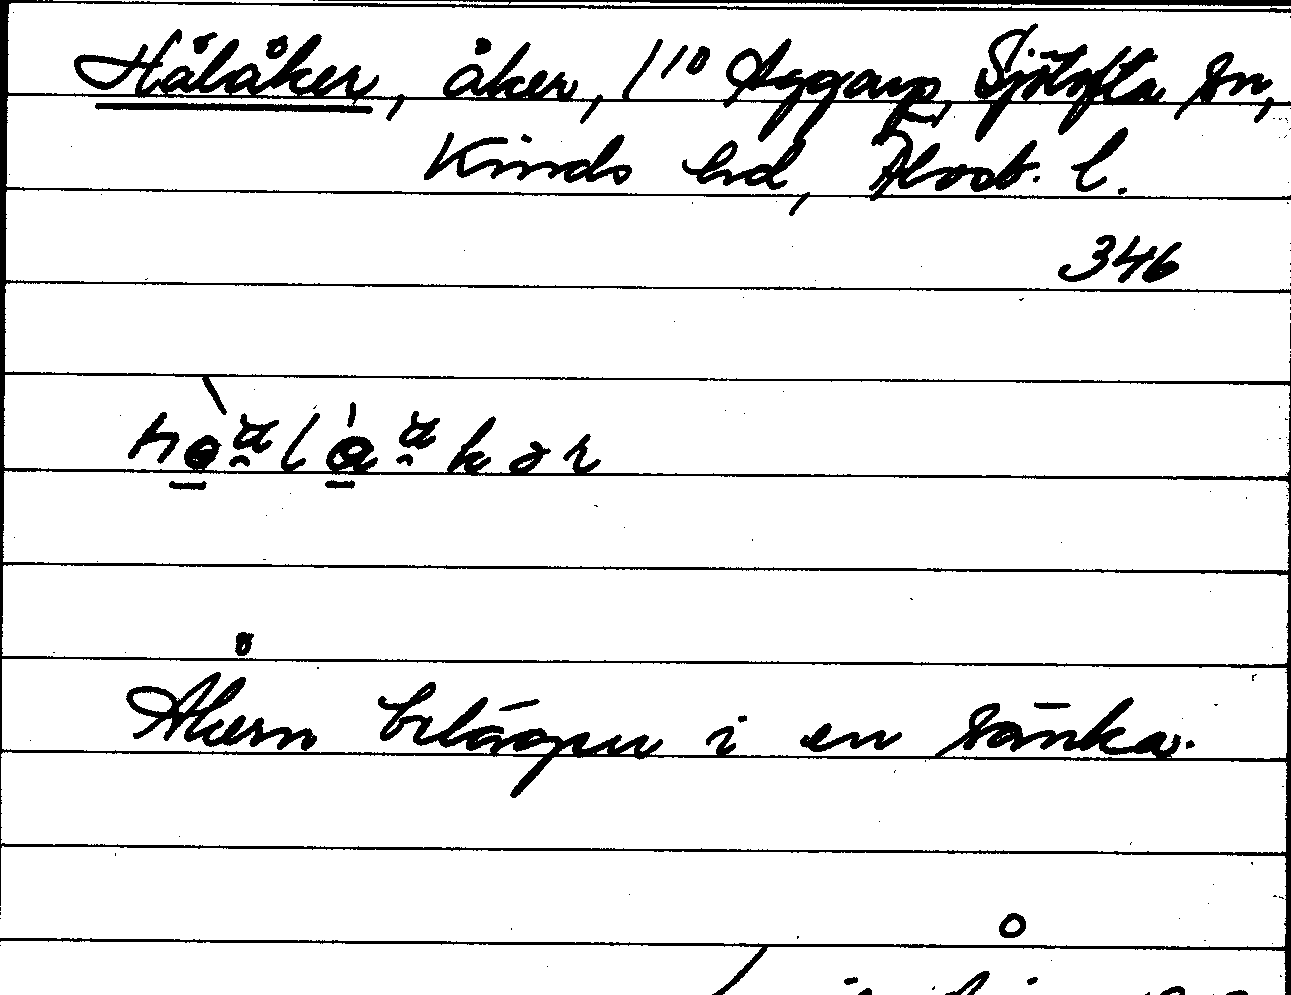 Hålåker, åker, 1/10 Aggarp, Sjötofta sn,
Kinds hd, Älvsb. l.
346
Åkern belägen i en sänka.